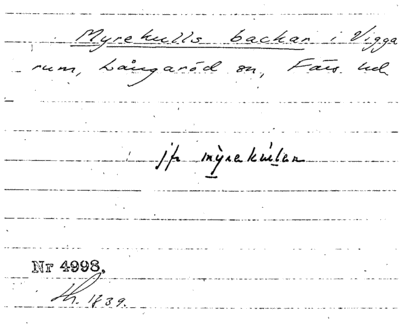 Myrekulls backar i Vigga
rum, Långaröd sn, Färs hd.
jfr myrekullen
Nr 4998.
Th. 1839.